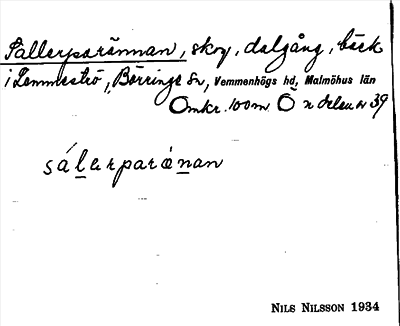 Sallerparännan, skog, dalgång, bäck
i Lemmeströ, Börringe sn, Vemmenhögs hd, Malmöhus län
Omkr. 100 m Ö n delen av 39
sálerparánan
NILS NILSSON 1934